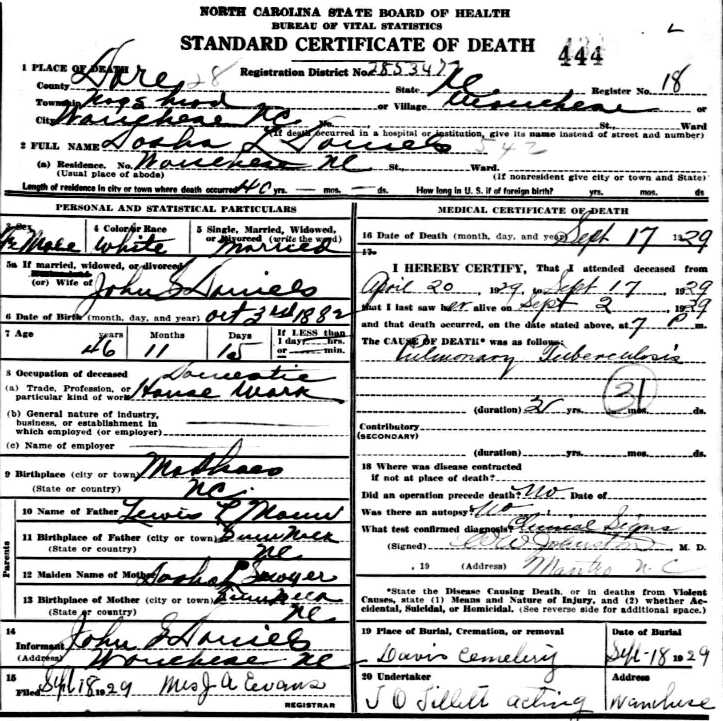 NORTH CAROLINA STATE BOARD OF HEALTH
BUREAU OF VITAL STATISTICS
STANDARD CERTIFICATE OF DEATH 444
1 PLACE OF DEATH
County Dare 28 Registration District No. State NC Register No. 18
Township Nags head or Village Wanchese or
City Wanchese NC No. St., Ward
(If death occurred in a hospital or institution, give its name instead of street and number)
2 FULL NAME Dosha L Daniels 542
(a) Residence. No. Wanchese NC St., Ward.
(Usual place of abode) (If nonresident give city or town and State)
Length of residence in city or town where death occurred 40 yrs. — mos. — ds. How long in U. S. if of foreign birth? yrs. mos. ds.
PERSONAL AND STATISTICAL PARTICULARS
3 Sex 4 Color or Race 5 Single, Married, Widowed, or Divorced (write the word)
Fe Male White Married
5a If married, widowed, or divorced
(or) Wife of John Daniels
6 Date of Birth (month, day, and year) Oct 3rd 1882
7 Age years Months Days If LESS than 1 day, hrs. or min.
46 11 15
8 Occupation of deceased Domestic
(a) Trade, Profession, or particular kind of work House Work
(b) General nature of industry, business, or establishment in which employed (or employer)
(c) Name of employer
9 Birthplace (city or town)
(State or country) NC.
Parents
10 Name of Father Lewis L Mann
11 Birthplace of Father (city or town)
(State or country) NC
12 Maiden Name of Mother Dosha P Sawyer
13 Birthplace of Mother (city or town)
(State or country) NC
14 Informant John Daniels
(Address) Wanchese NC
15 Filed Sept 18 1929 Mrs J A Evans
REGISTRAR
MEDICAL CERTIFICATE OF DEATH
16 Date of Death (month, day, and year) Sept 17 1929
17
I HEREBY CERTIFY, That I attended deceased from
April 20, 1929 to Sept 17, 1929
that I last saw her alive on Sept 2, 1929
and that death occurred, on the date stated above, at 7 P m.
The CAUSE OF DEATH* was as follows:
Pulmonary Tuberculosis
31
(duration) 2 yrs. mos. ds.
Contributory
(SECONDARY)
(duration) yrs. mos. ds.
18 Where was disease contracted
if not at place of death?
Did an operation precede death? No Date of
Was there an autopsy? No
What test confirmed diagnosis? Clinical Signs
(Signed) W Johnston M. D.
, 19 (Address) Manteo N.C
*State the Disease Causing Death, or in deaths from Violent Causes, state (1) Means and Nature of Injury, and (2) whether Accidental, Suicidal, or Homicidal. (See reverse side for additional space.)
19 Place of Burial, Cremation, or removal Date of Burial
Davis Cemetery Sept-18 1929
20 Undertaker Address
J O Tillett acting Wanchese